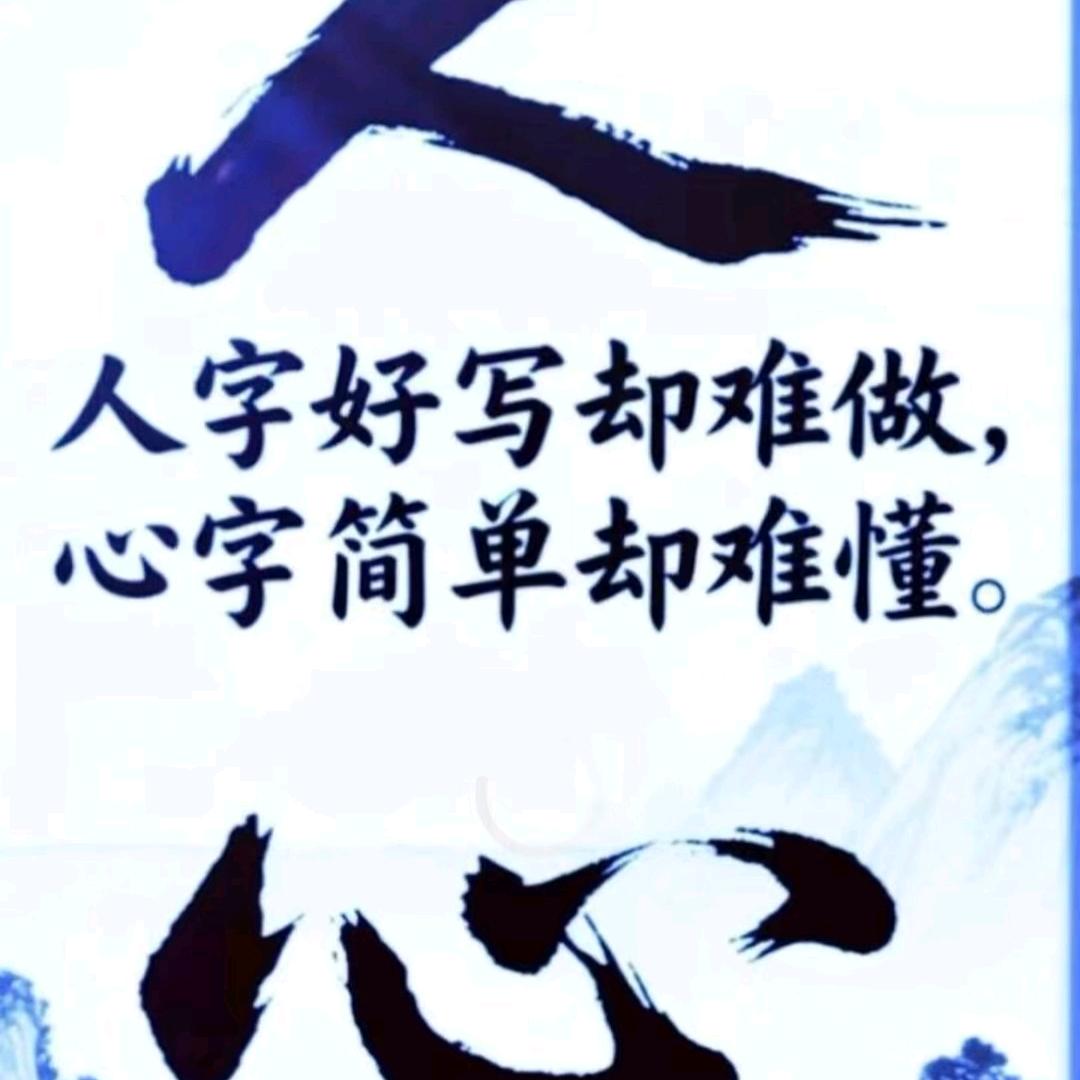 人
人字好写却难做，
心字简单却难懂。
心